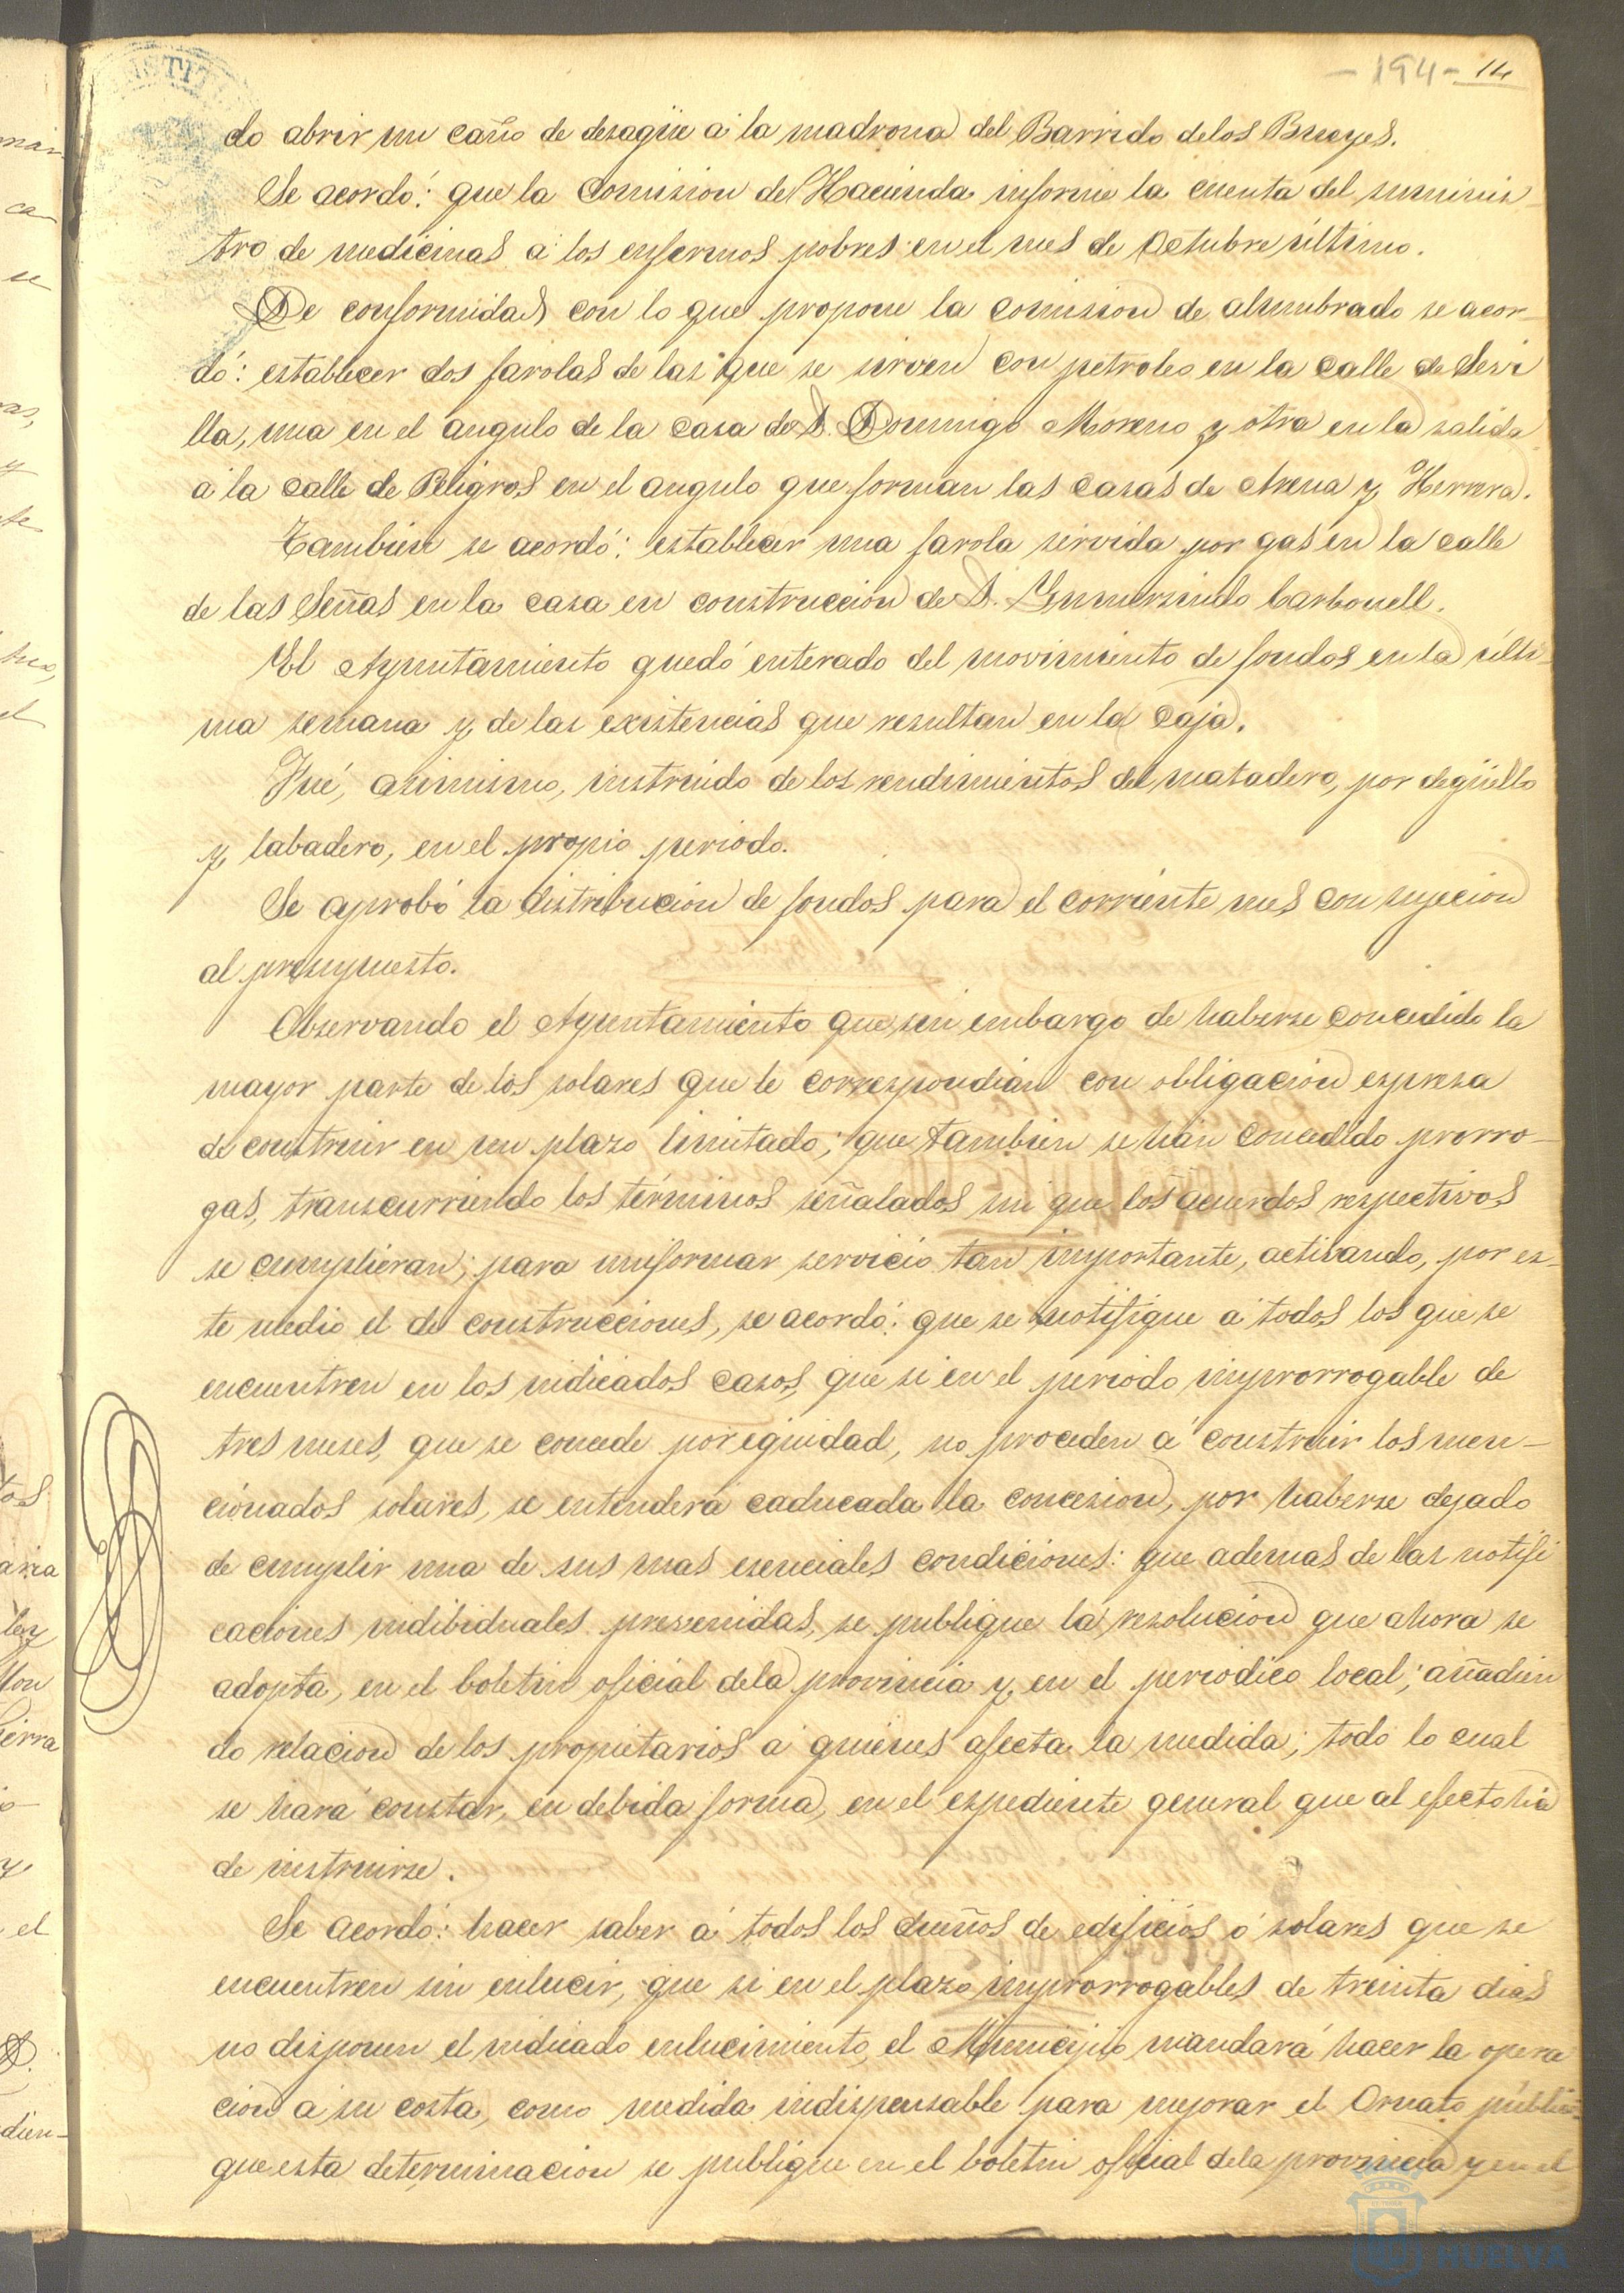 - 194 - 14
do abrir un caño de desagüe a la madrona del Barrido de los Bueyes.
Se acordó: que la Comision de Hacienda informe la cuenta del suminis-
tro de medicinas a los enfermos pobres en el mes de Octubre último.
De conformidad con lo que propone la comision de alumbrado se acor-
dó: establecer dos farolas de las que se sirven con petroleo en la calle de Sevi
lla, una en el angulo de la casa de D. Domingo Moreno y otra en la salida
á la calle de Peligros en el angulo que forman las casas de Arena y Herrera.
Tambien se acordó: establecer una farola servida por gas en la calle
de las Señas en la casa en construccion de D. Gumersindo Carbonell.
El Ayuntamiento quedó enterado del movimiento de fondos en la últi-
ma semana y de las existencias que resultan en la Caja.
Fué, asimismo, instruido de los rendimientos del matadero, por degüello
y labadero, en el propio periodo.
Se aprobó la distribucion de fondos para el corriente mes con sujecion
al presupuesto.
Observando el Ayuntamiento que sin embargo de haberse concedido la
mayor parte de los solares que le correspondian con obligacion espresa
de construir en un plazo limitado; que tambien se han concedido prorro-
gas, transcurriendo los términos señalados sin que los acuerdos respectivos
se cumplieran; para uniformar servicio tan importante, activando, por es-
te medio el de construcciones, se acordó: que se notifique á todos los que se
encuentren en los indicados casos, que si en el periodo improrrogable de
tres meses, que se concede por equidad, no proceden á construir los men-
cionados solares, se entenderá caducada la concesion, por haberse dejado
de cumplir una de sus mas esenciales condiciones: que ademas de las notifi
caciones indibiduales prevenidas, se publique la resolucion que ahora se
adopta, en el boletin oficial de la provincia y en el periodico local; añadien
do relacion de los propietarios á quienes afecta la medida; todo lo cual
se hará constar, en debida forma, en el espediente general que al efecto há
de instruirse.
Se acordó: hacer saber á todos los dueños de edificios ó solares que se
encuentren sin enlucir, que si en el plazo improrrogables de treinta dias
no disponen el indicado enlucimiento, el Municipio mandará hacer la opera
cion a su costa, como medida indispensable para mejorar el Ornato público
que esta determinacion se publique en el boletin oficial de la provincia y en el
HUELVA